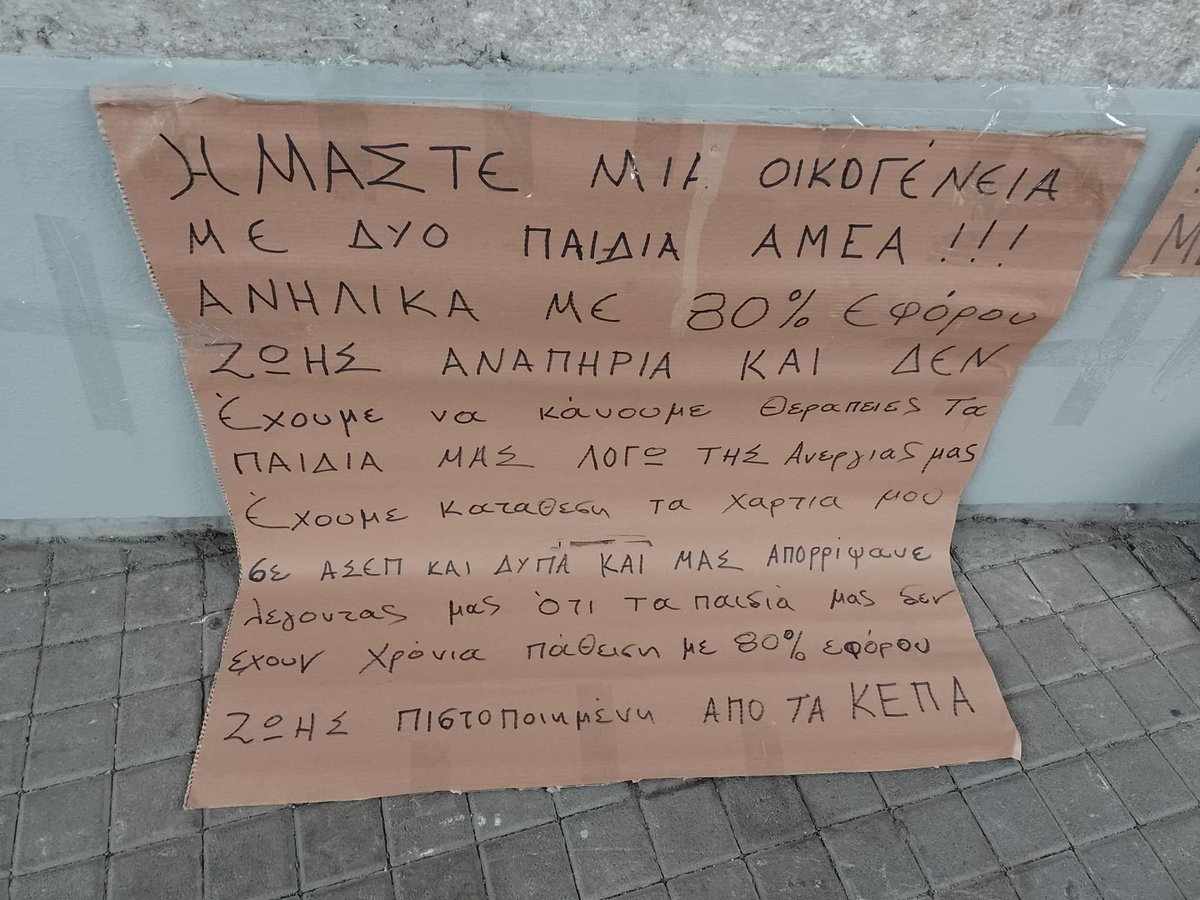 ΗΜΑΣΤΕ ΜΙΑ ΟΙΚΟΓΈΝΕΙΑ
ΜΕ ΔΥΟ ΠΑΙΔΙΑ ΑΜΕΑ !!!
ΑΝΗΛΙΚΑ ΜΕ 80% Εφόρου
ΖΩΗΣ ΑΝΑΠΗΡΙΑ ΚΑΙ ΔΕΝ
Έχουμε να κάνουμε θεραπειες Τα
ΠΑΙΔΙΑ ΜΑΣ ΛΟΓΩ ΤΗΣ Ανεργιας μας
Έχουμε καταθεση τα χαρτια μου
σε ΑΣΕΠ ΚΑΙ ΔΥΠΑ ΚΑΙ ΜΑΣ ΑΠΟΡΡΙΨΑΝΕ
λεγοντας μας Ότι τα παιδιά μας δεν
εχουν χρόνια πάθειση με 80% εφόρου
ΖΩΗΣ ΠΙΣΤΟΠοιημένη ΑΠΟ ΤΑ ΚΕΠΑ